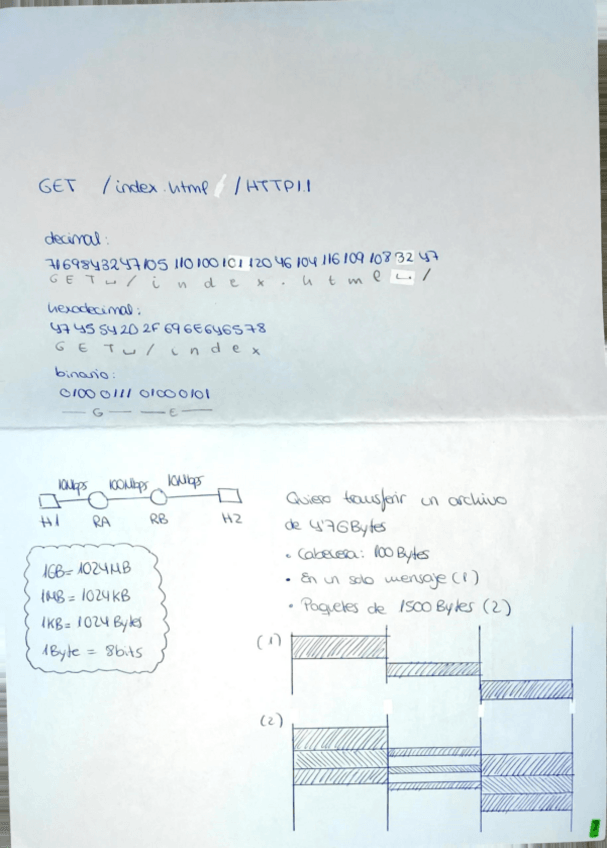 GET /index.html / HTTP1.1
decimal:
71 69 84 32 47 105 110 100 101 120 46 104 116 109 108 32 47
G E T ␣ / i n d e x . h t m l ␣ /
hexadecimal:
47 45 54 20 2F 69 6E 64 65 78
G E T ␣ / i n d e x
binario:
0100 0111 0100 0101
G E
10Mbps 100Mbps 10Mbps
H1 RA RB H2
1GB = 1024MB
1MB = 1024KB
1KB = 1024 Bytes
1Byte = 8bits
Quiero transferir un archivo
de 4'7GBytes
• Cabecera: 100 Bytes
• En un solo mensaje (1)
• Paquetes de 1500 Bytes (2)
(1)
(2)